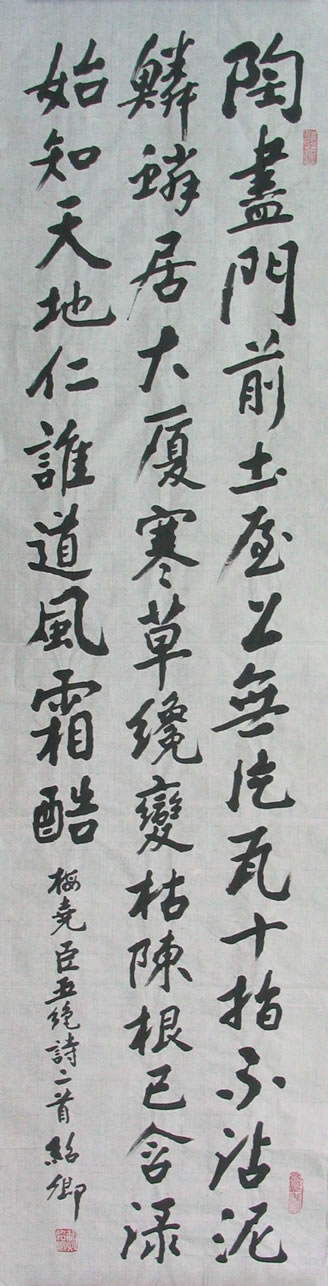 陶盡門前土屋上無片瓦十指不沾泥
鱗鱗居大厦寒草纔變枯陳根已含渌
始知天地仁誰道風霜酷
梅堯臣五絶詩二首紹卿